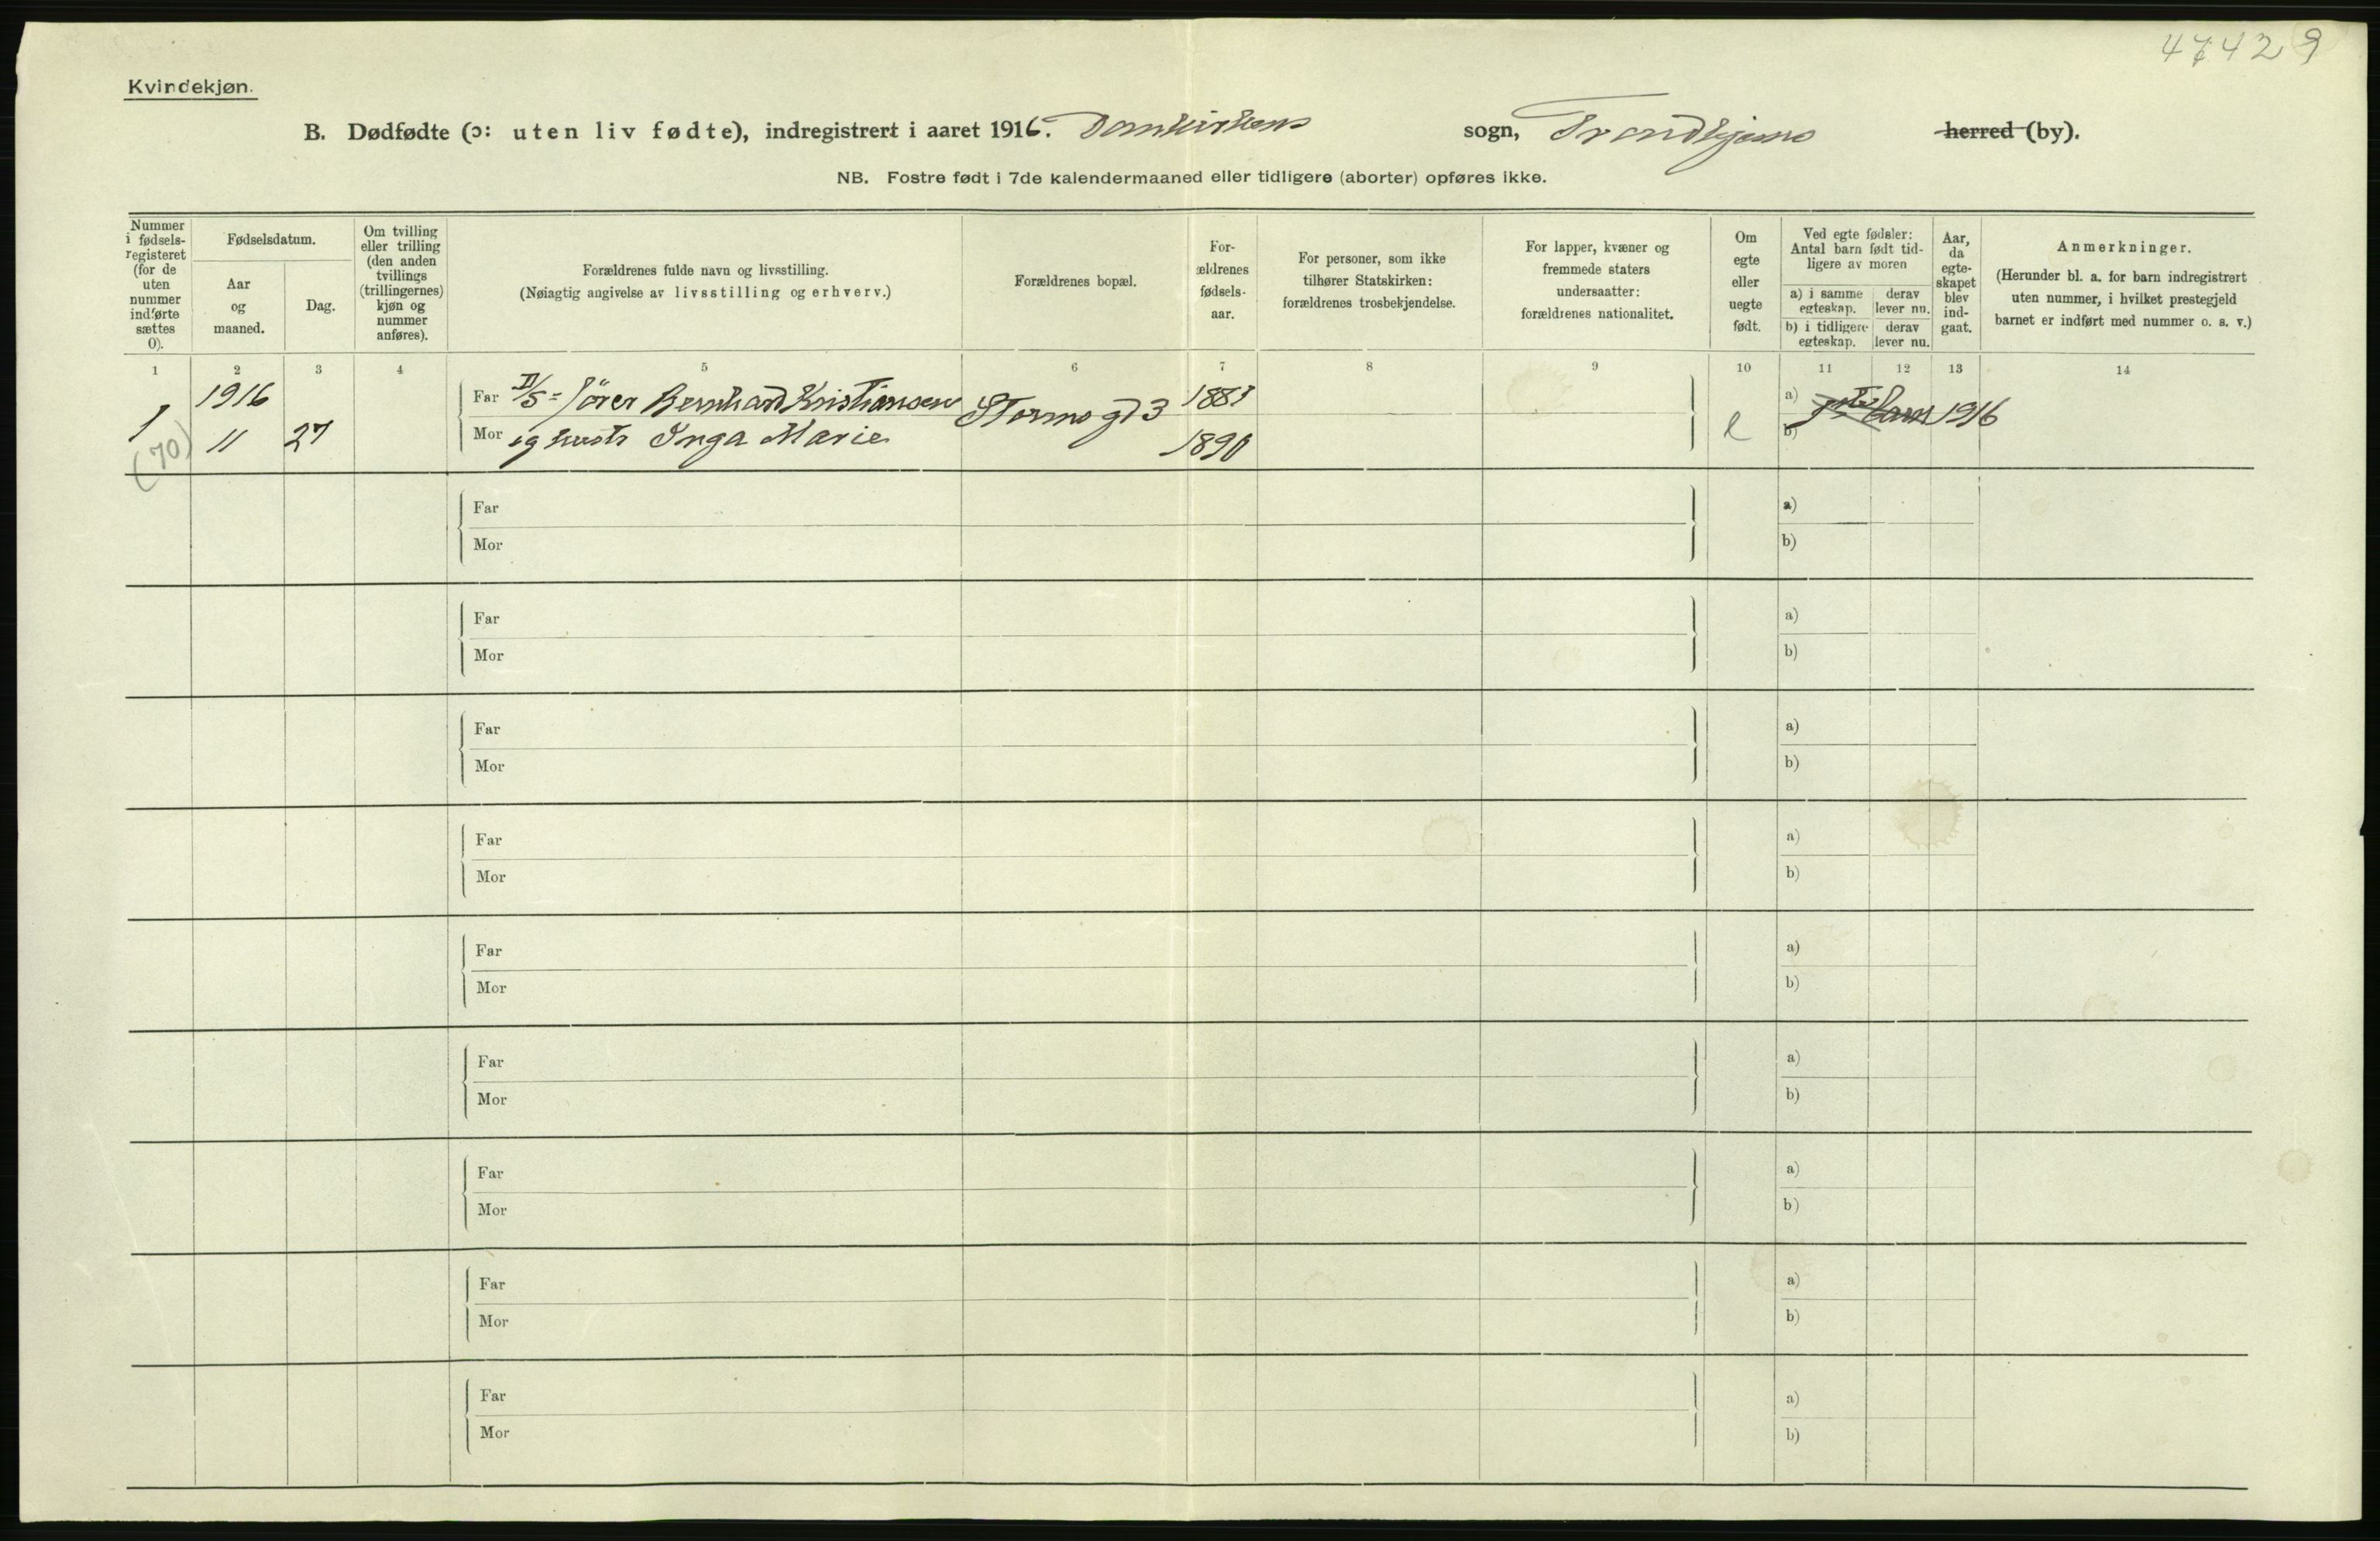 47429
Kvindekjøn.
B. Dødfødte (ɔ: uten liv fødte), indregistrert i aaret 1916. Domkirkens sogn, Trondhjems herred (by).
NB. Fostre født i 7de kalendermaaned eller tidligere (aborter) opføres ikke.
Nummer
i fødsels-
registeret
(for de
uten
nummer
indførte
sættes
0).
Fødselsdatum.
Aar
og
maaned.
Dag.
Om tvilling
eller trilling
(den anden
tvillings
(trillingernes)
kjøn og
nummer
anføres).
Forældrenes fulde navn og livsstilling.
(Nøiagtig angivelse av livsstilling og erhverv.)
Forældrenes bopæl.
For-
ældrenes
fødsels-
aar.
For personer, som ikke
tilhører Statskirken:
forældrenes trosbekjendelse.
For lapper, kvæner og
fremmede staters
undersaatter:
forældrenes nationalitet.
Om
egte
eller
uegte
født.
Ved egte fødsler:
Antal barn født tid-
ligere av moren
a) i samme
egteskap.
derav
lever nu.
b) i tidligere
egteskap.
derav
lever nu.
Aar,
da
egte-
skapet
blev
ind-
gaat.
Anmerkninger.
(Herunder bl. a. for barn indregistrert
uten nummer, i hvilket prestegjeld
barnet er indført med nummer o. s. v.)
1 2 3 4 5 6 7 8 9 10 11 12 13 14
1916 Far Bernhard Kristiansen 3 1883 a) barn 1916
1 11 27 Mor og hustr Inga Marie 1890 e b)
(70)
Far a)
Mor b)
Far a)
Mor b)
Far a)
Mor b)
Far a)
Mor b)
Far a)
Mor b)
Far a)
Mor b)
Far a)
Mor b)
Far a)
Mor b)
Far a)
Mor b)